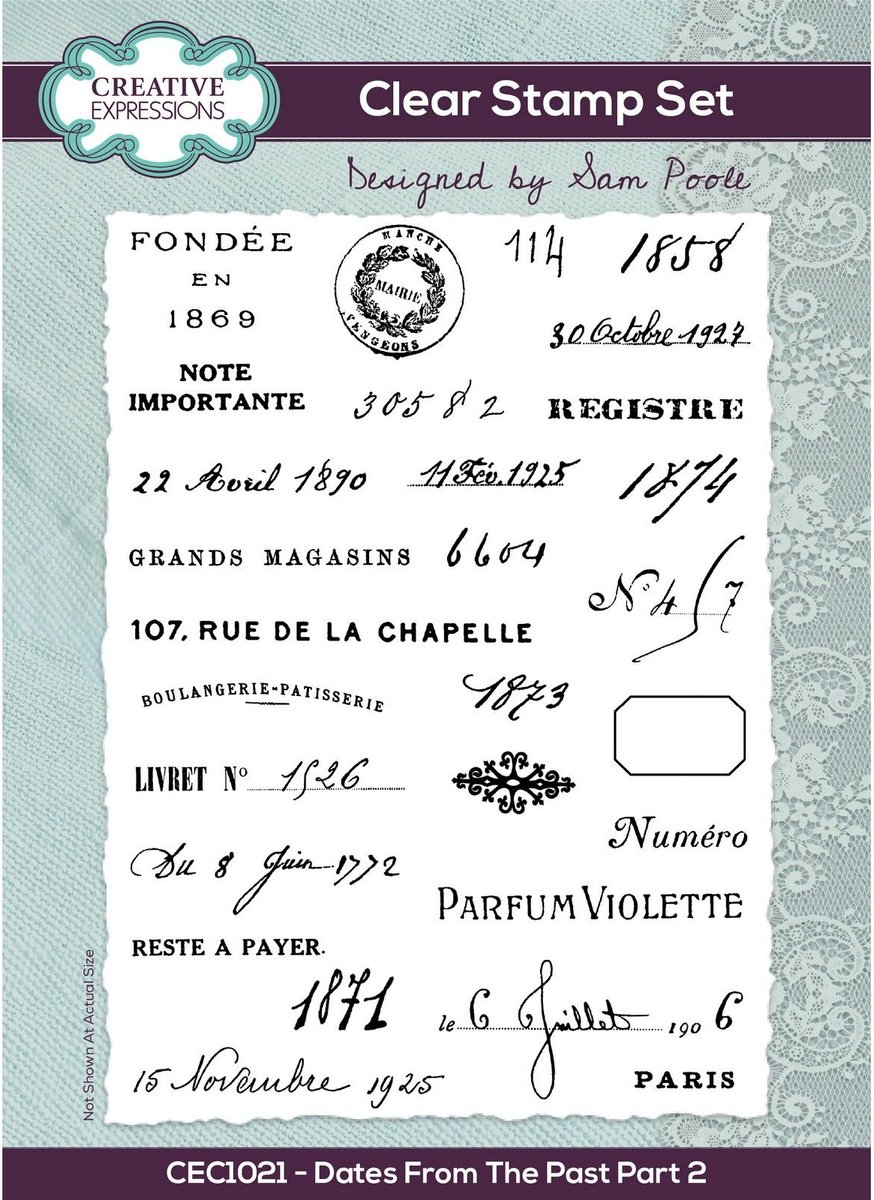 CREATIVE
EXPRESSIONS
Clear Stamp Set
Designed by Sam Poole
FONDÉE
EN
1869
MANCHE
MAIRIE
VENGEONS
114
1858
30 Octobre 1927
NOTE
IMPORTANTE
30582
REGISTRE
22 Avril 1890
11 Fév. 1925
1874
GRANDS MAGASINS
6604
N° 4 7
107, RUE DE LA CHAPELLE
BOULANGERIE-PATISSERIE
1873
LIVRET N° 1526
Numéro
Du 8 Juin 1772
PARFUM VIOLETTE
RESTE A PAYER.
1871
le 6 Juillet 1906
15 Novembre 1925
PARIS
Not Shown At Actual Size
CEC1021 - Dates From The Past Part 2